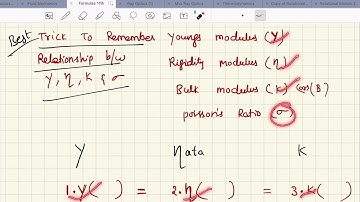 Formulas 11th
Best Trick To Remember
Relationship b/w
Y, η, K & σ
Youngs modulus (Y)
Rigidity modulus (η)
Bulk modulus (K) or (B)
poisson's Ratio (σ)
Y ηata K
1.Y( ) = 2.η( ) = 3.K( )